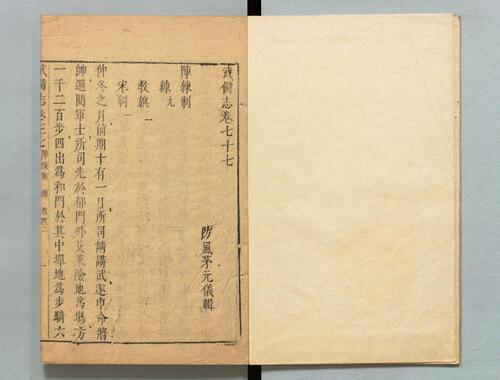 武備志卷七十七
防風茅元儀輯
陣練制
練九
教旗一
宋制一
仲冬之月前期十有一日所司請講武遂申命將
帥選閱軍士所司先於都門外芟萊除地為塲方
一千二百步四出為和門於其中墠地為步騎六
武備志卷七十七 陣練制 練 教旗一